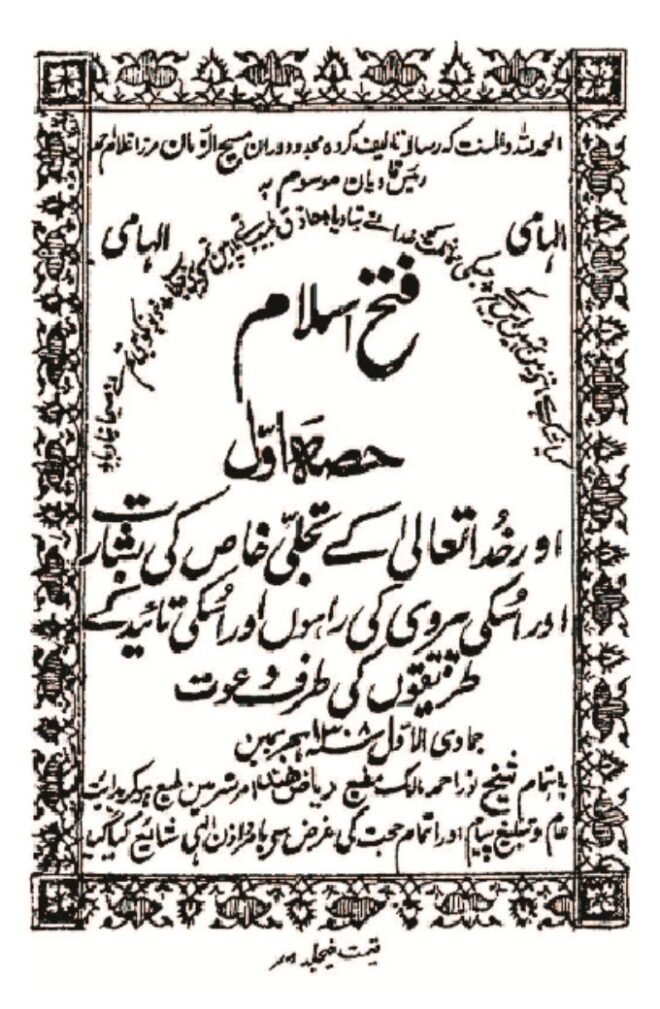 الحمد للہ والمنت کہ رسالہ تالیف کردہ مجدد دوران مسیح الزمان مرزا غلام احمد
رئیس قادیان موسوم بہ
الہامی الہامی
فتح اسلام
حصہ اوّل
اور خُدا تعالیٰ کے تجلّی خاص کی بشارت
اور اُسکی پیروی کی راہوں اور اُسکی تائید کے
طریقوں کی طرف دعوت
جمادی الاوّل ۱۳۰۸ ہجری میں
باہتمام شیخ نور احمد مالک مطبع ریاض ہند امرتسر میں طبع ہو کر ہدایت
عام و تبلیغ پیام اور اتمام حجت کی غرض سے بامر و اذن الٰہی شائع کیا گیا
قیمت فیجلد